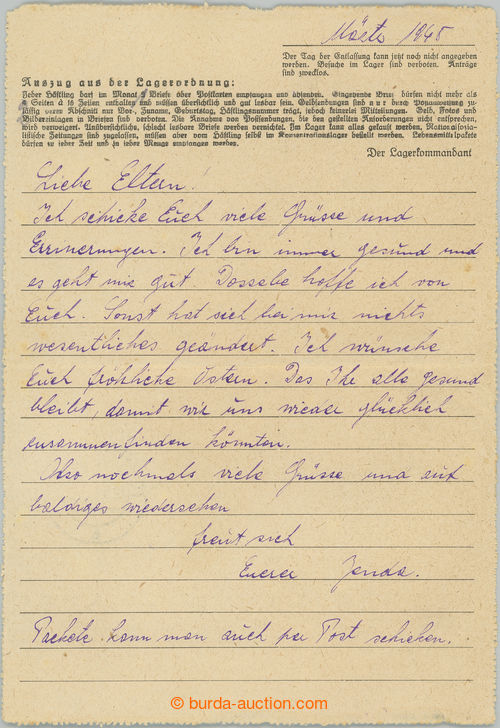 März 1945
Der Tag der Entlassung kann jetzt noch nicht angegeben
werden. Besuche im Lager sind verboten. Anträge
sind zwecklos.
Auszug aus der Lagerordnung:
Jeder Häftling darf im Monat 2 Briefe oder Postkarten empfangen und absenden. Eingehende Briefe dürfen nicht mehr als
4 Seiten à 15 Zeilen enthalten und müssen übersichtlich und gut lesbar sein. Geldsendungen sind nur durch Postanweisung zu-
lässig, deren Abschnitt nur Vor-, Zuname, Geburtstag, Häftlingsnummer trägt, jedoch keinerlei Mitteilungen. Geld, Fotos und
Bildereinlagen in Briefen sind verboten. Die Annahme von Postsendungen, die den gestellten Anforderungen nicht entsprechen,
wird verweigert. Unübersichtliche, schlecht lesbare Briefe werden vernichtet. Im Lager kann alles gekauft werden. Nationalsozia-
listische Zeitungen sind zugelassen, müssen aber vom Häftling selbst im Konzentrationslager bestellt werden. Lebensmittelpakete
dürfen zu jeder Zeit und in jeder Menge empfangen werden.
Der Lagerkommandant
Liebe Eltern!
Ich schicke Euch viele Grüsse und
Errinerungen. Ich bin immer gesund und
es geht mir gut. Dasselbe hoffe ich von
Euch. Sonst hat sich bei mir nichts
wesentliches geändert. Ich wünsche
Euch fröhliche Ostern. Das Ihr alle gesund
bleibt, damit wir uns wieder glücklich
zusammenfinden könnten.
Also nochmals viele Grüsse und auf
baldiges wiedersehen
freut sich
Euerer Jenda.
Packete kann man auch per Post schicken.
© burda-auction.com